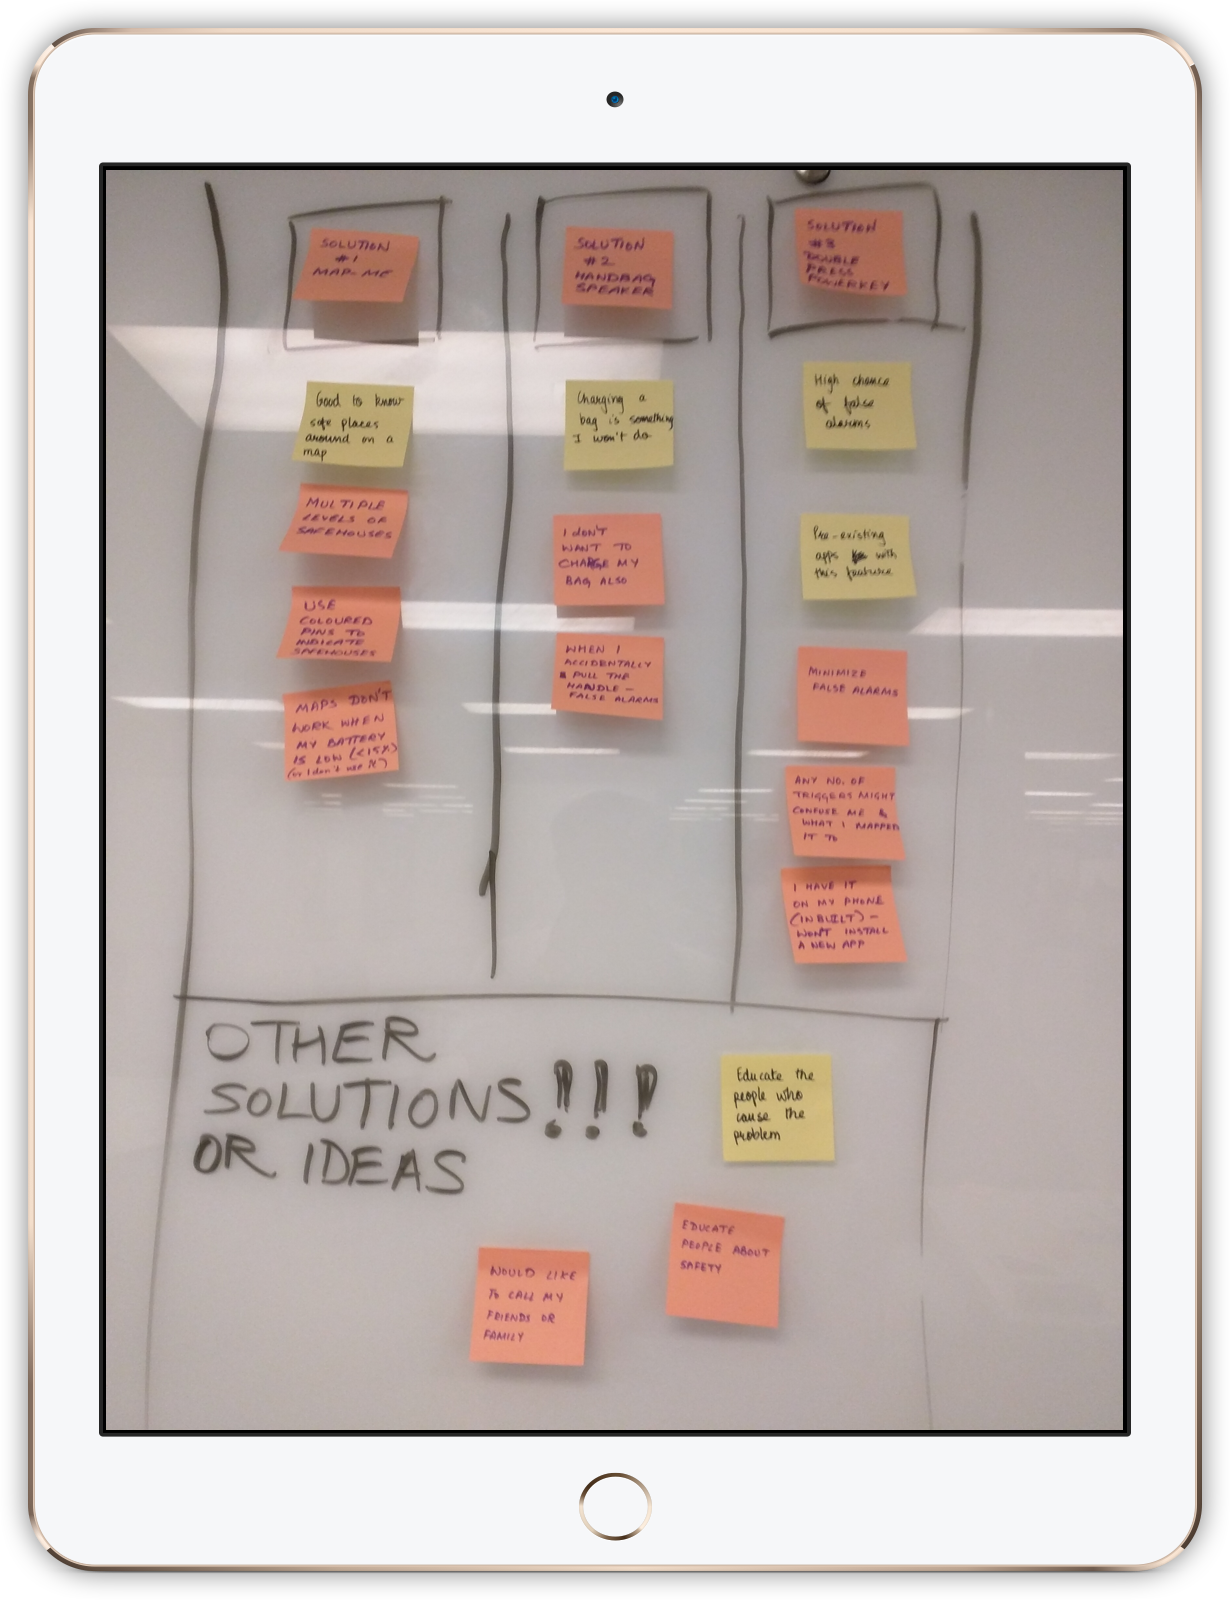 SOLUTION
#1
MAP-ME
Good to know
safe places
around on a
map
MULTIPLE
LEVELS OF
SAFEHOUSES
USE
COLOURED
PINS TO
INDICATE
SAFEHOUSES
MAPS DON'T
WORK WHEN
MY BATTERY
IS LOW (<15%)
(or I don't use it)
SOLUTION
#2
HANDBAG
SPEAKER
Charging a
bag is something
I won't do
I DON'T
WANT TO
CHARGE MY
BAG ALSO
WHEN I
ACCIDENTALLY
PULL THE
HANDLE -
FALSE ALARMS
SOLUTION
#3
DOUBLE
PRESS
POWERKEY
High chance
of false
alarms
Pre-existing
apps with
this feature
MINIMIZE
FALSE ALARMS
ANY NO. OF
TRIGGERS MIGHT
CONFUSE ME &
WHAT I MAPPED
IT TO
I HAVE IT
ON MY PHONE
(INBUILT) -
WON'T INSTALL
A NEW APP
OTHER
SOLUTIONS!!!
OR IDEAS
Educate the
people who
cause the
problem
EDUCATE
PEOPLE ABOUT
SAFETY
WOULD LIKE
TO CALL MY
FRIENDS OR
FAMILY